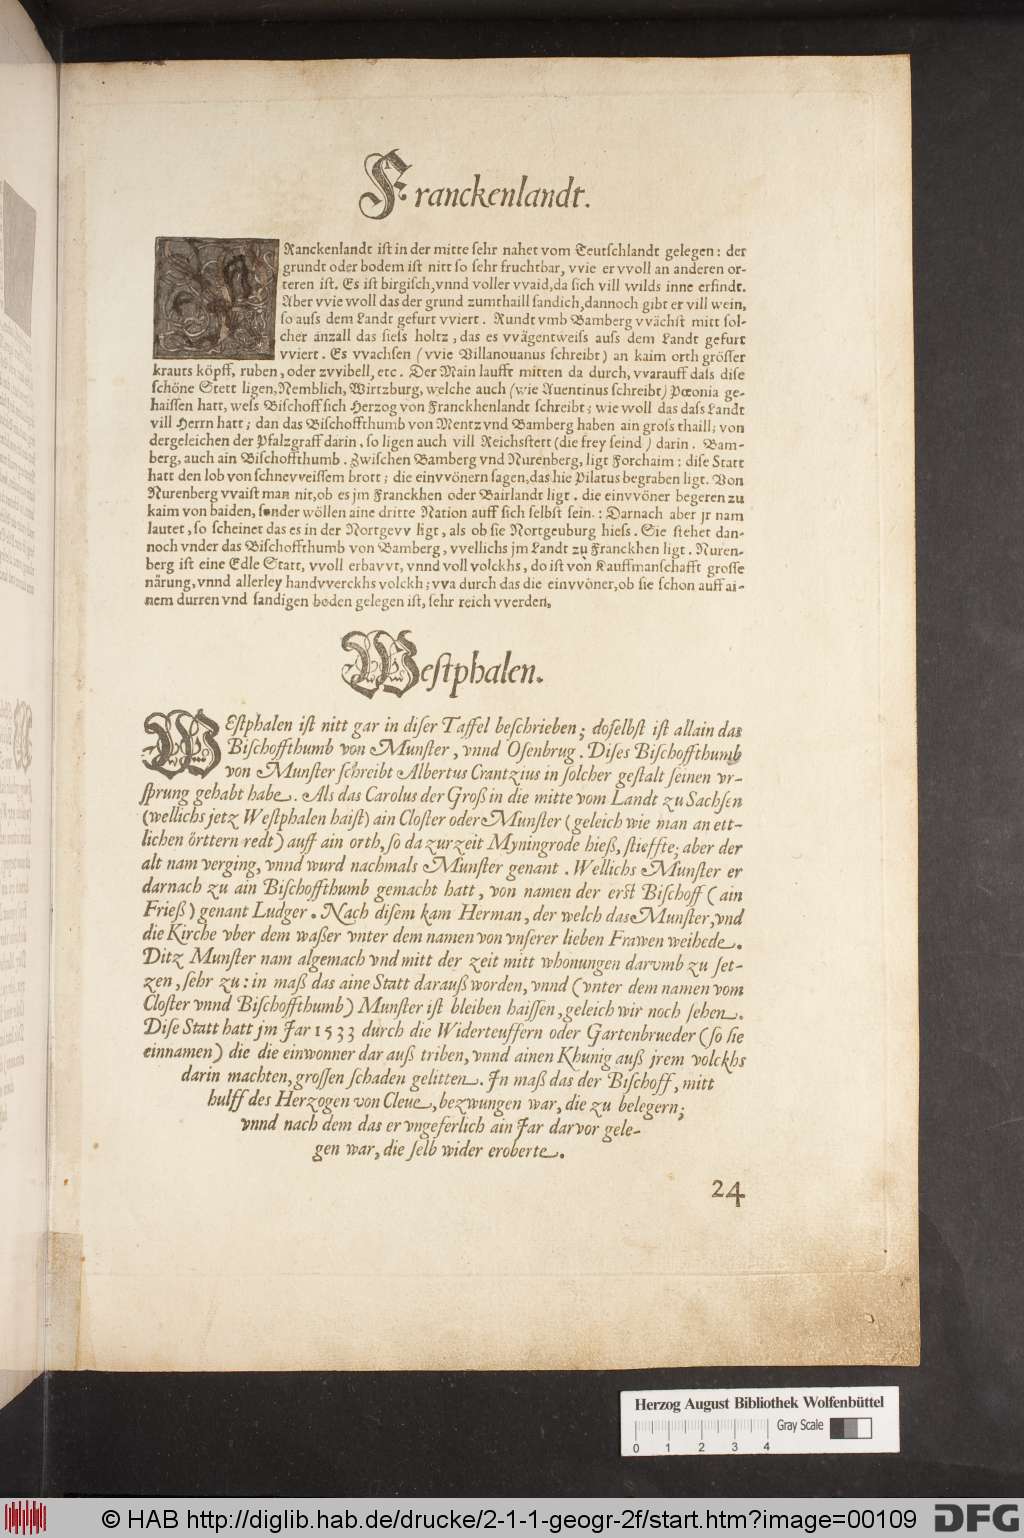 Franckenlandt.
FRanckenlandt ist in der mitte sehr nahet vom Teutschlandt gelegen: der
grundt oder bodem ist nitt so sehr fruchtbar, vvie er vvoll an anderen or-
teren ist. Es ist birgisch, vnnd voller vvaid, da sich vill wilds inne erfindt.
Aber vvie woll das der grund zumthaill sandich, dannoch gibt er vill wein,
so auss dem Landt gefurt vviert. Rundt vmb Bamberg vvächst mitt sol-
cher anzall das siess holtz, das es vvägentweiss auss dem Landt gefurt
vviert. Es vvachsen (vvie Villanouanus schreibt) an kaim orth grösser
krauts köpff, ruben, oder zvvibell, etc. Der Main laufft mitten da durch, vvarauff dass dise
schöne Stett ligen, Nemblich, Wirtzburg, welche auch (wie Auentinus schreibt) Pœonia ge-
haissen hatt, wess Bischoff sich Herzog von Franckhenlandt schreibt; wie woll das dass Landt
vill Herrn hatt; dan das Bischoffthumb von Mentz vnd Bamberg haben ain gross thaill; von
dergeleichen der Pfalzgraff darin, so ligen auch vill Reichsstett (die frey seind) darin. Bam-
berg, auch ain Bischoffthumb. Zwischen Bamberg vnd Nurenberg, ligt Forchaim: dise Statt
hatt den lob von schnevveissem brott; die einvvönern sagen, das hie Pilatus begraben ligt. Von
Nurenberg vvaist man nit, ob es jm Franckhen oder Bairlandt ligt. die einvvöner begeren zu
kaim von baiden, sonder wöllen aine dritte Nation auff sich selbst sein.: Darnach aber jr nam
lautet, so scheinet das es in der Nortgevv ligt, als ob sie Nortgeuburg hiess. Sie stehet dan-
noch vnder das Bischoffthumb von Bamberg, vvellichs jm Landt zu Franckhen ligt. Nuren-
berg ist eine Edle Statt, vvoll erbavvt, vnnd voll volckhs, do ist von Kauffmanschafft grosse
närung, vnnd allerley handvverckhs volckh; vva durch das die einvvöner, ob sie schon auff ai-
nem durren vnd sandigen boden gelegen ist, sehr reich vverden.
Westphalen.
WEstphalen ist nitt gar in diser Taffel beschrieben; doselbst ist allain das
Bischoffthumb von Munster, vnnd Osenbrug. Dises Bischoffthumb
von Munster schreibt Albertus Crantzius in solcher gestalt seinen vr-
sprung gehabt habe. Als das Carolus der Groß in die mitte vom Landt zu Sachsen
(wellichs jetz Westphalen haist) ain Closter oder Munster (geleich wie man an ett-
lichen örttern redt) auff ain orth, so da zur zeit Myningrode hieß, stieffte; aber der
alt nam verging, vnnd wurd nachmals Munster genant. Wellichs Munster er
darnach zu ain Bischoffthumb gemacht hatt, von namen der erst Bischoff (ain
Frieß) genant Ludger. Nach disem kam Herman, der welch das Munster, vnd
die Kirche vber dem waßer vnter dem namen von vnserer lieben Frawen weihede.
Ditz Munster nam algemach vnd mitt der zeit mitt whonungen darvmb zu set-
zen, sehr zu: in maß das aine Statt darauß worden, vnnd (vnter dem namen vom
Closter vnnd Bischoffthumb) Munster ist bleiben haissen, geleich wir noch sehen.
Dise Statt hatt jm Jar 1533 durch die Widerteuffern oder Gartenbrueder (so sie
einnamen) die die einwonner dar auß triben, vnnd ainen Khunig auß jrem volckhs
darin machten, grossen schaden gelitten. Jn maß das der Bischoff, mitt
hulff des Herzogen von Cleue, bezwungen war, die zu belegern;
vnnd nach dem das er vngeferlich ain Jar darvor gele-
gen war, die selb wider eroberte.
24
Herzog August Bibliothek Wolfenbüttel
Gray Scale
0 1 2 3 4
© HAB http://diglib.hab.de/drucke/2-1-1-geogr-2f/start.htm?image=00109
DFG